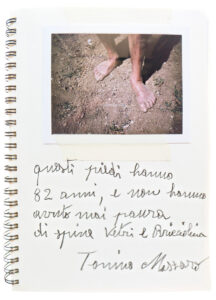 questi piedi hanno
82 anni, e non hanno
avuto mai paura
di spine vetri e
Tonino